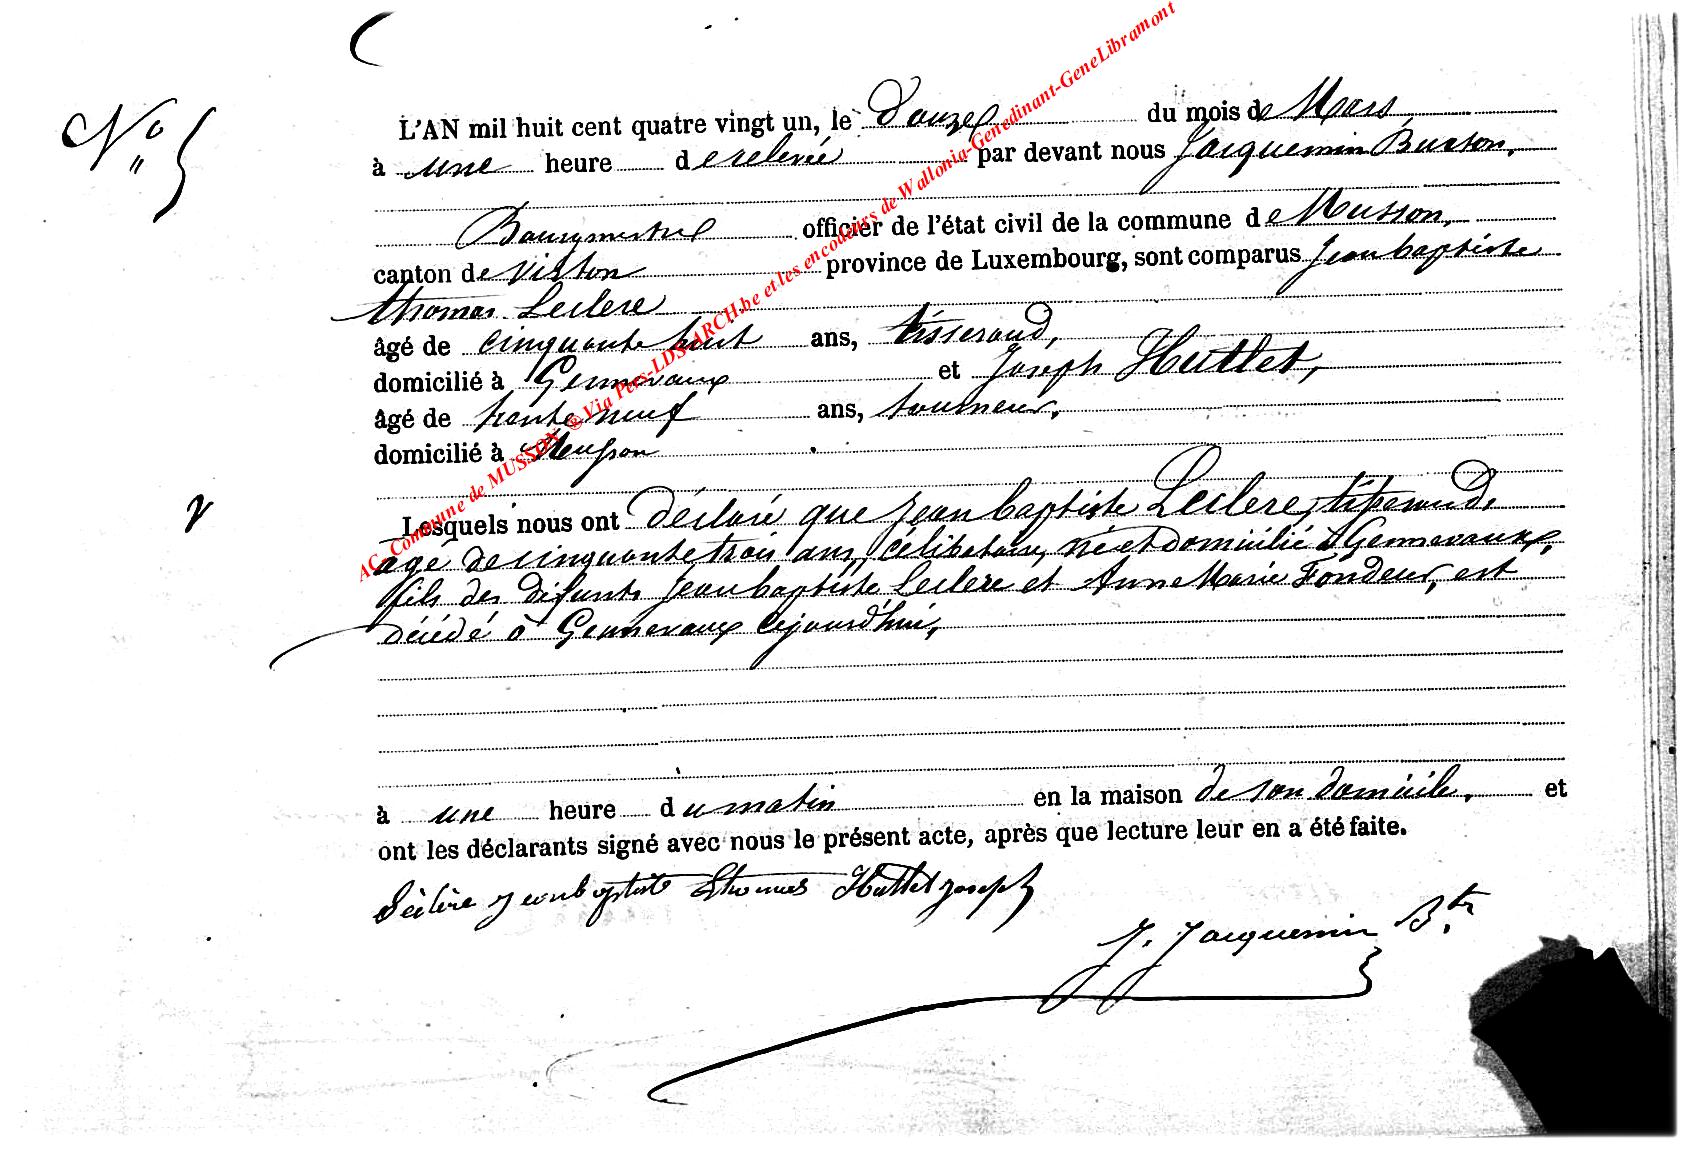 N° 5
L'AN mil huit cent quatre vingt un, le Douze du mois de Mars
à une heure de relevée par devant nous Jacquemin Burton,
Bourgmestre officier de l'état civil de la commune de Musson,
canton de Virton province de Luxembourg, sont comparus Jean baptiste
thomas Leclere
âgé de cinquante huit ans, tisserand,
domicilié à Gennevaux et Joseph Huttet,
âgé de trente neuf ans, tourneur,
domicilié à Musson
Lesquels nous ont déclaré que jean baptiste Leclere, tisserand,
agé de cinquante trois ans, célibataire, né et domicilié à Gennevaux,
fils des défunts Jean baptiste Leclere et Anne Marie Fondeur, est
décédé à Gennevaux cejourd'hui,
à une heure du matin en la maison de son domicile, et
ont les déclarants signé avec nous le présent acte, après que lecture leur en a été faite.
Lèclère jeanbaptiste Thomas Huttet joseph
J. Jacquemin Btr
AC. Commune de MUSSON @ Via Pers-LDS-ARCH.be et les encodeurs de Wallonia-Genedinant-GeneLibramont